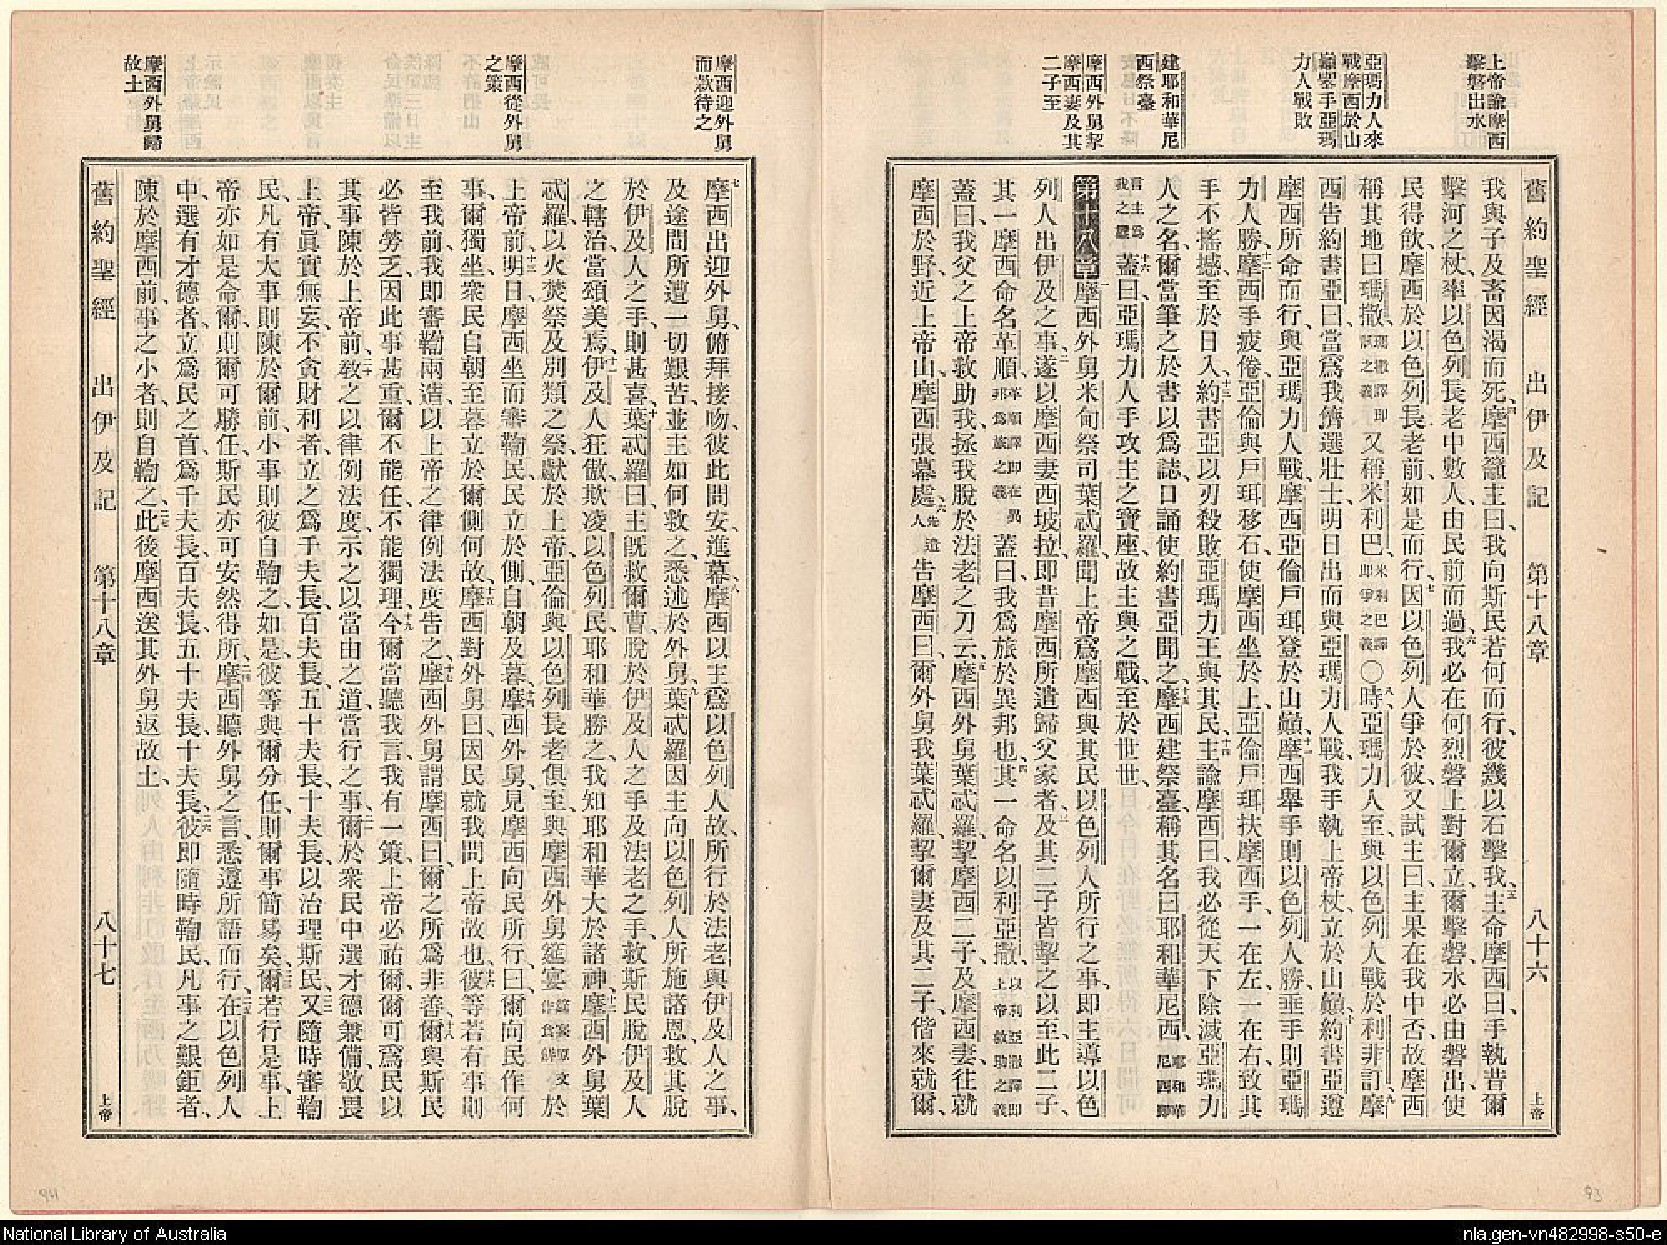 上帝諭摩西
擊磐出水
亞瑪力人來
戰摩西於山
巔舉手亞瑪
力人戰敗
建耶和華尼
西祭臺
摩西外舅挈
摩西妻及其
二子至
舊約聖經 出伊及記 第十八章 八十六 上帝
我與子及畜因渴而死、四摩西籲主曰、我向斯民若何而行、彼幾以石擊我、五主命摩西曰、手執昔爾
擊河之杖、率以色列長老中數人、由民前而過、六我必在何烈磐上對爾立、爾擊磐、水必由磐出、使
民得飲、摩西於以色列長老前、如是而行、七因以色列人爭於彼、又試主曰、主果在我中否、故摩西
稱其地曰瑪撒、瑪撒譯即試之義又稱米利巴、米利巴譯即爭之義〇八時亞瑪力人至、與以色列人戰於利非訂、九摩
西告約書亞曰、當爲我儕選壯士、明日出而與亞瑪力人戰、我手執上帝杖、立於山巔、十約書亞遵
摩西所命而行、與亞瑪力人戰、摩西亞倫戶珥登於山巔、十一摩西舉手、則以色列人勝、垂手、則亞瑪
力人勝、十二摩西手疲倦、亞倫與戶珥移石、使摩西坐於上、亞倫戶珥扶摩西手、一在左、一在右、致其
手不搖撼、至於日入、十三約書亞以刃殺敗亞瑪力王與其民、十四主諭摩西曰、我必從天下除滅亞瑪力
人之名、爾當筆之於書以爲誌、口誦使約書亞聞之、十五摩西建祭臺、稱其名曰耶和華尼西、耶和華尼西譯
言主爲我之纛十六蓋曰、亞瑪力人手攻主之寶座、故主與之戰、至於世世、
第十八章 一摩西外舅米甸祭司葉忒羅、聞上帝爲摩西與其民以色列人所行之事、即主導以色
列人出伊及之事、二遂以摩西妻西坡拉、即昔摩西所遣歸父家者、三及其二子、皆挈之以至、此二子、
其一摩西命名革順、革順譯即在異邦爲旅之義蓋曰、我爲旅於異邦也、四其一命名以利亞撒、以利亞撒譯即上帝救助之義
蓋曰、我父之上帝救助我、拯我脫於法老之刀云、五摩西外舅葉忒羅、挈摩西二子及摩西妻、往就
摩西於野、近上帝山、摩西張幕處、六先遣人告摩西曰、爾外舅我葉忒羅、挈爾妻及其二子、偕來就爾、
摩西迎外舅
而欵待之
摩西從外舅
之策
摩西外舅歸
故土
七摩西出迎外舅、俯拜接吻、彼此問安、進幕、八摩西以主爲以色列人故、所行於法老與伊及人之事、
及途間所遭一切艱苦、並主如何救之、悉述於外舅、九葉忒羅因主向以色列人所施諸恩、救其脫
於伊及人之手、則甚喜、十葉忒羅曰、主旣救爾曹脫於伊及人之手及法老之手、救斯民脫伊及人
之轄治、當頌美焉、十一伊及人狂傲、欺凌以色列民、耶和華勝之、我知耶和華大於諸神、十二摩西外舅葉
忒羅、以火焚祭及別類之祭、獻於上帝、亞倫與以色列長老俱至、與摩西外舅筵宴筵宴原文作食餅於
上帝前、十三明日、摩西坐而審鞫民、民立於側、自朝及暮、十四摩西外舅、見摩西向民所行、曰、爾向民作何
事、爾獨坐、衆民自朝至暮立於爾側何故、十五摩西對外舅曰、因民就我問上帝故也、十六彼等若有事、則
至我前、我即審鞫兩造、以上帝之律例法度告之、十七摩西外舅謂摩西曰、爾之所爲非善、十八爾與斯民
必皆勞乏、因此事甚重、爾不能任、不能獨理、十九今爾當聽我言、我有一策、上帝必祐爾、爾可爲民以
其事陳於上帝前、二十敎之以律例法度、示之以當由之道、當行之事、二一爾於衆民中選才德兼備、敬畏
上帝、眞實無妄、不貪財利者、立之爲千夫長、百夫長、五十夫長、十夫長、以治理斯民、二二又隨時審鞫
民、凡有大事則陳於爾前、小事則彼自鞫之、如是彼等與爾分任、則爾事簡易矣、二三爾若行是事、上
帝亦如是命爾、則爾可勝任、斯民亦可安然得所、二四摩西聽外舅之言、悉遵所語而行、二五在以色列人
中、選有才德者、立爲民之首、爲千夫長、百夫長、五十夫長、十夫長、二六彼即隨時鞫民、凡事之艱鉅者、
陳於摩西前、事之小者、則自鞫之、二七此後摩西送其外舅返故土、
舊約聖經 出伊及記 第十八章 八十七 上帝
94
93
National Library of Australia
nla.gen-vn482998-s50-e